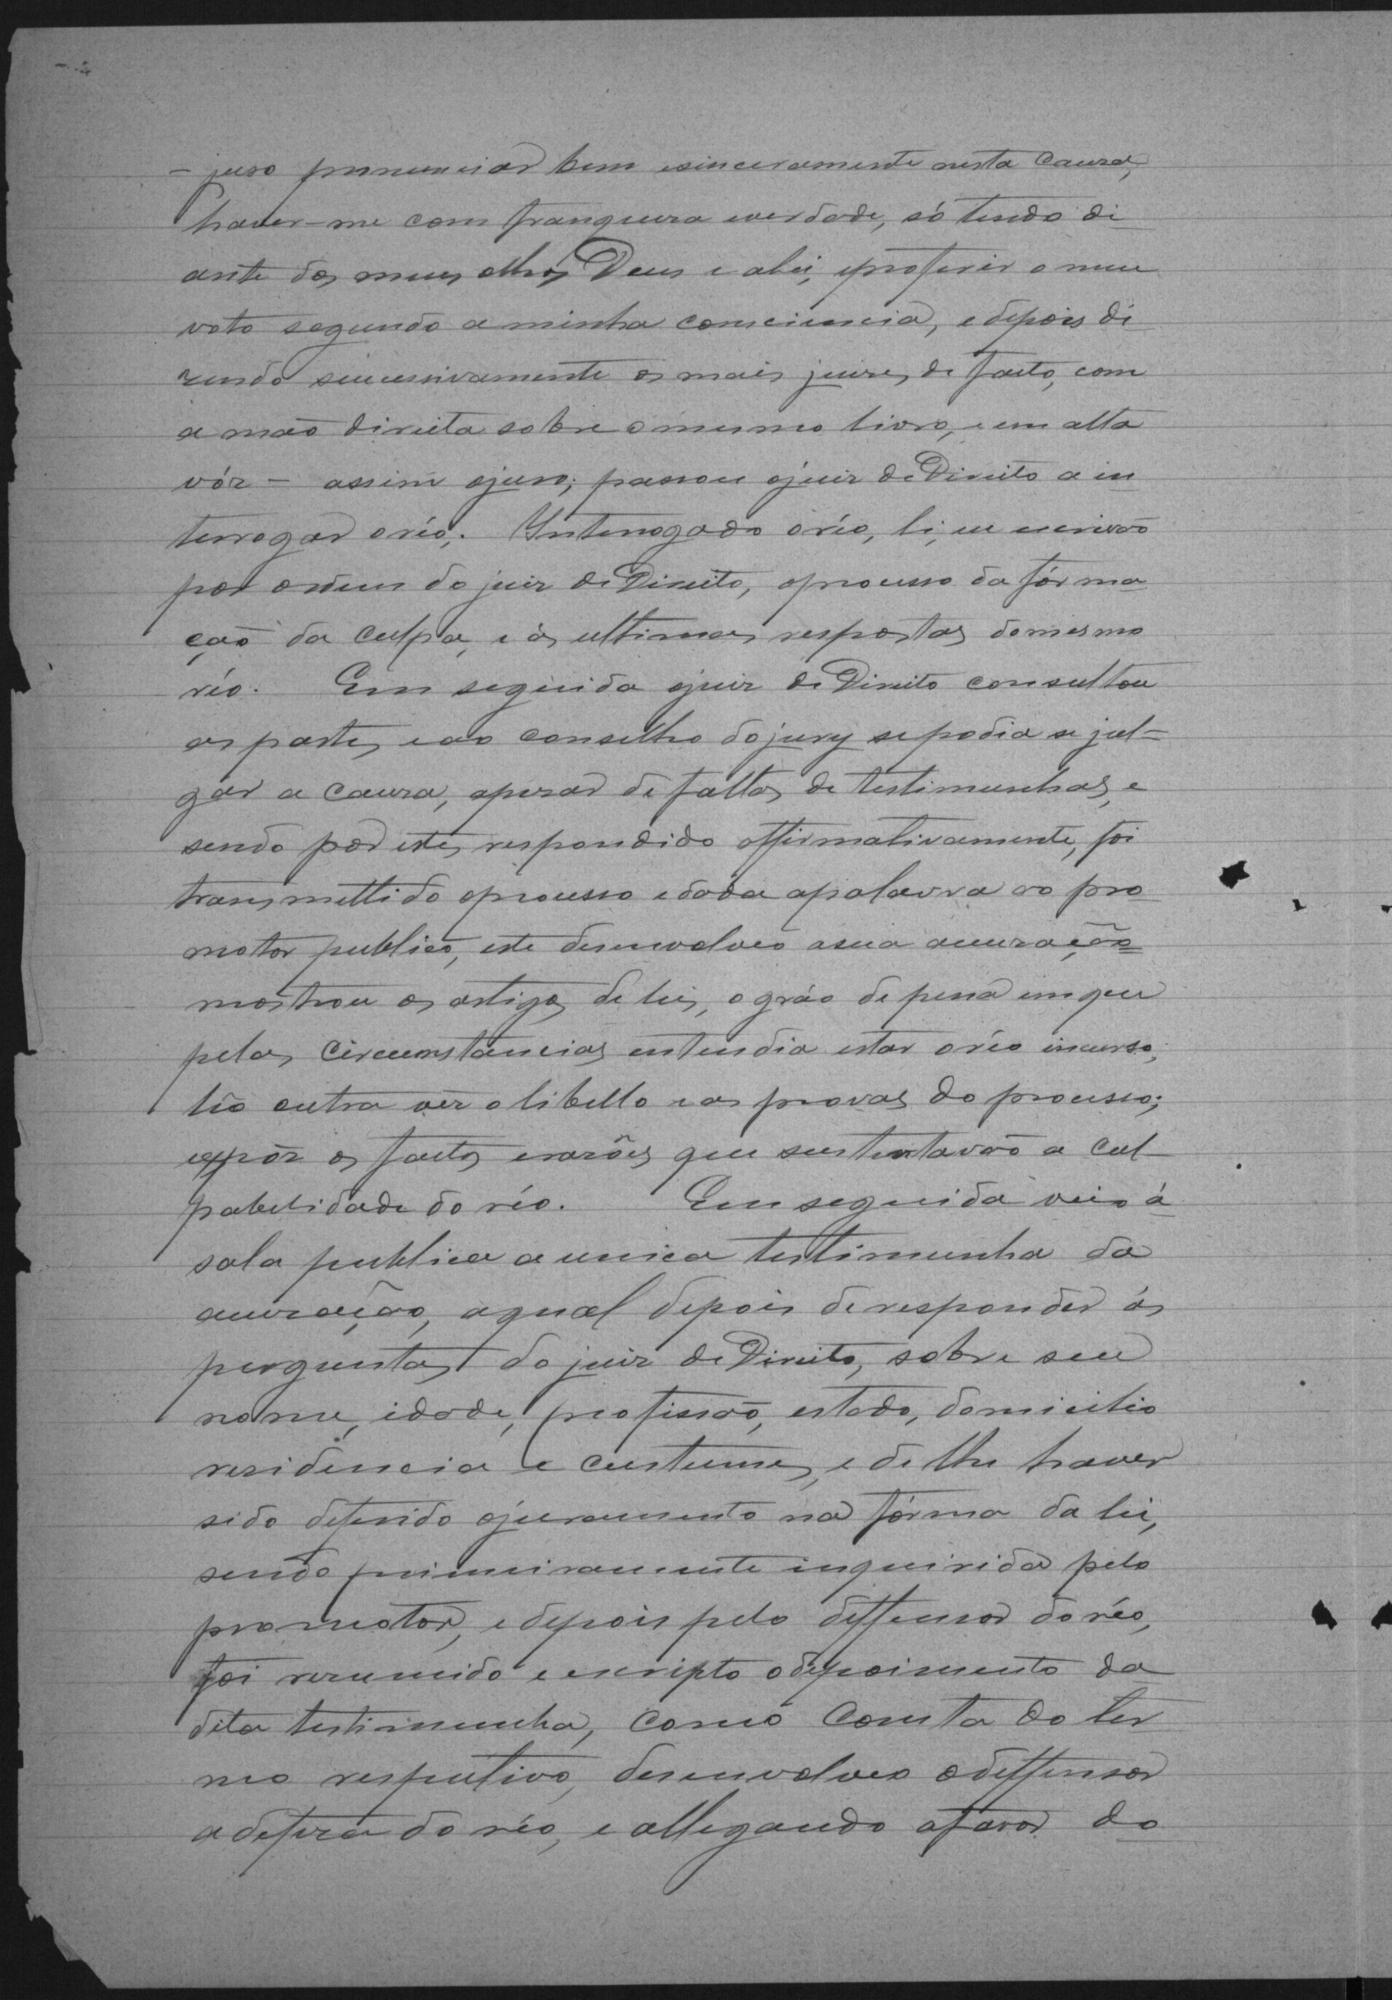 – juro pronunciar bem esinceramente nesta causa,
haver-me com franqueza everdade, só tendo di
ante dos meus olhos Deus e alei, eproferir o meu
voto segundo a minha consciencia, edepois di
zendo successivamente os mais juizes de facto, com
a mão direita sobre o mesmo livro, e em alta
vóz – assim ojuro; passou ojuiz de Direito a in
terrogar o réo. Interrogado o réo, li, eu escrivão
por ordem do juiz de Direito, oprocesso da fórma
ção da culpa, e ás ultimas respostas domesmo
réo. Em seguida ojuiz de Direito consultou
as partes, eao conselho dojury sepodia se jul-
gar a causa, apezar de faltas de testimunhas, e
sendo por estes respondido affirmativamente, foi
transmettido oprocesso edada apalavra ao pro
motor publico, este desenvolveo asua accusação
mostrou os artigos de lei, o gráo de pena emque
pelas circumstancias entendia estar oréo incurso,
lêo outra vêz o libello e as provas do processo;
expôz os factos erasões que sustentavão a cul-
pabilidade do réo. Em seguida veio á
sala publica a unica testimunha da
accusação, aqual depois deresponder ás
perguntas do juiz de Direito, sobre seu
nome, idade, profissão, estado, domicilio
residencia e custumes, e de lhe haver
sido deferido ojuramento na fórma da lei,
sendo primeiramente inquirida pelo
promotor, edepois pelo deffensor do réo,
foi resumido e escripto odepoimento da
dita testimunha, como consta do ter
mo respectivo, desenvolveo odeffensor
adefeza do réo, e allegando afavor do